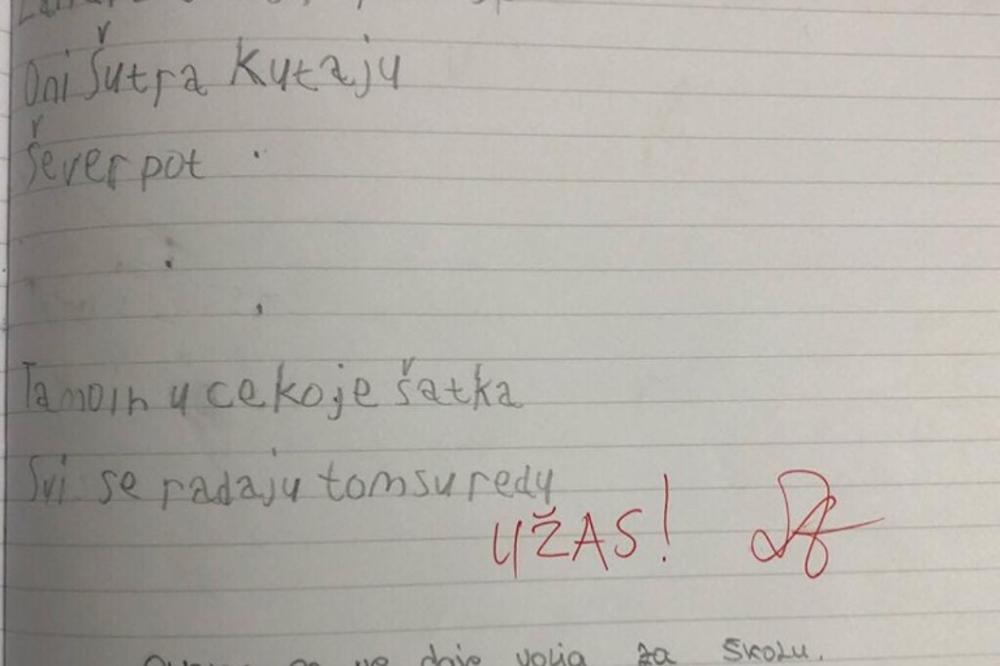 Oni šutra kutaju
šever pot
Tamoih u cekoje šatka
Svi se radaju tomsu redu
UŽAS!
se ne daje volja za školu.